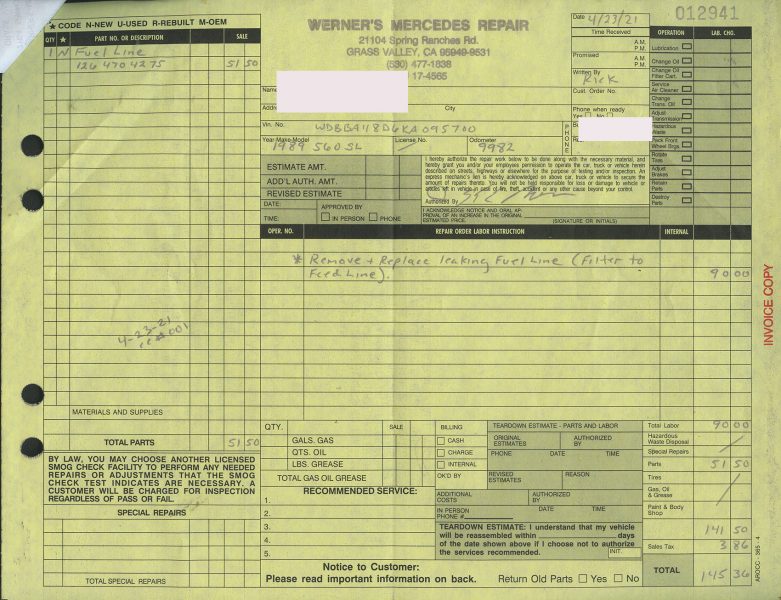 ★ CODE N-NEW U-USED R-REBUILT M-OEM
QTY ★ PART NO. OR DESCRIPTION SALE
1 N Fuel Line
126 470 4275 51 50
4-23-21
MATERIALS AND SUPPLIES
TOTAL PARTS 51 50
BY LAW, YOU MAY CHOOSE ANOTHER LICENSED
SMOG CHECK FACILITY TO PERFORM ANY NEEDED
REPAIRS OR ADJUSTMENTS THAT THE SMOG
CHECK TEST INDICATES ARE NECESSARY. A
CUSTOMER WILL BE CHARGED FOR INSPECTION
REGARDLESS OF PASS OR FAIL.
SPECIAL REPAIRS
TOTAL SPECIAL REPAIRS
WERNER'S MERCEDES REPAIR
21104 Spring Ranches Rd.
GRASS VALLEY, CA 95949-9531
(530) 477-1838
17-4565
Date 4/23/21
012941
Time Received
A.M.
P.M.
Promised A.M.
P.M.
Written By
Rick
Cust. Order No.
Phone when ready
Yes No
PHONE
Name
City
Vin. No. WDBBA48D6KA095700
Year Make Model License No. Odometer
1989 560 SL 9982
OPERATION LAB. CHG.
Lubrication
Change Oil
Change Oil
Filter Cart.
Service
Air Cleaner
Change
Trans. Oil
Adjust
Transmission
Hazardous
Waste
Pack Front
Wheel Brgs.
Rotate
Tires
Adjust
Brakes
Retain
Parts
Destroy
Parts
ESTIMATE AMT.
ADD'L AUTH. AMT.
REVISED ESTIMATE
DATE: APPROVED BY
TIME: IN PERSON PHONE
I hereby authorize the repair work below to be done along with the necessary material, and
hereby grant you and/or your employees permission to operate the car, truck or vehicle herein
described on streets, highways or elsewhere for the purpose of testing and/or inspection. An
express mechanic's lien is hereby acknowledged on above car, truck or vehicle to secure the
amount of repairs thereto. You will not be held responsible for loss or damage to vehicle or
articles left in vehicle in case of fire, theft, accident or any other cause beyond your control.
Authorized By
I ACKNOWLEDGE NOTICE AND ORAL AP-
PROVAL OF AN INCREASE IN THE ORIGINAL
ESTIMATED PRICE. (SIGNATURE OR INITIALS)
OPER. NO. REPAIR ORDER LABOR INSTRUCTION INTERNAL
* Remove + Replace leaking Fuel Line (Filter to
Feed Line). 90 00
INVOICE COPY
QTY. SALE
GALS. GAS
QTS. OIL
LBS. GREASE
TOTAL GAS OIL GREASE
RECOMMENDED SERVICE:
1.
2.
3.
4.
5.
BILLING
CASH
CHARGE
INTERNAL
OK'D BY
TEARDOWN ESTIMATE - PARTS AND LABOR
ORIGINAL ESTIMATES AUTHORIZED BY
PHONE DATE TIME
REVISED ESTIMATES REASON
ADDITIONAL COSTS AUTHORIZED BY
IN PERSON
PHONE # DATE TIME
TEARDOWN ESTIMATE: I understand that my vehicle
will be reassembled within days
of the date shown above if I choose not to authorize
the services recommended. INIT.
Notice to Customer:
Please read important information on back.
Return Old Parts Yes No
Total Labor 90 00
Hazardous
Waste Disposal
Special Repairs
Parts 51 50
Tires
Gas, Oil
& Grease
Paint & Body
Shop
141 50
Sales Tax 3 86
TOTAL 145 36